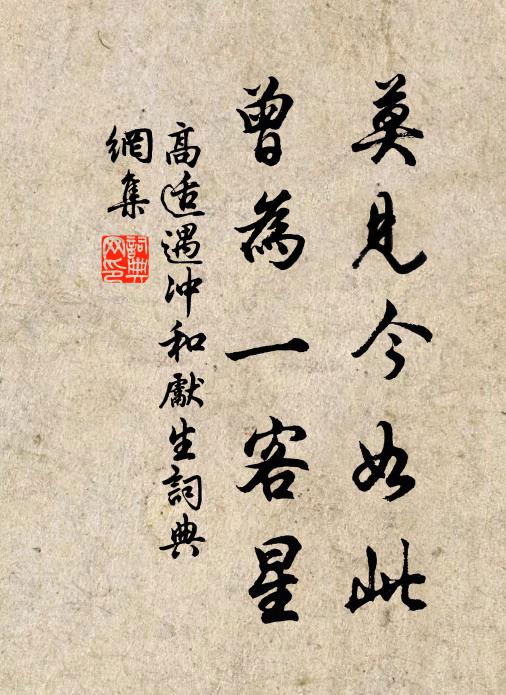 莫見今如此
曾為一客星
高适遇沖和獻生詞典
網集
詞典
網印